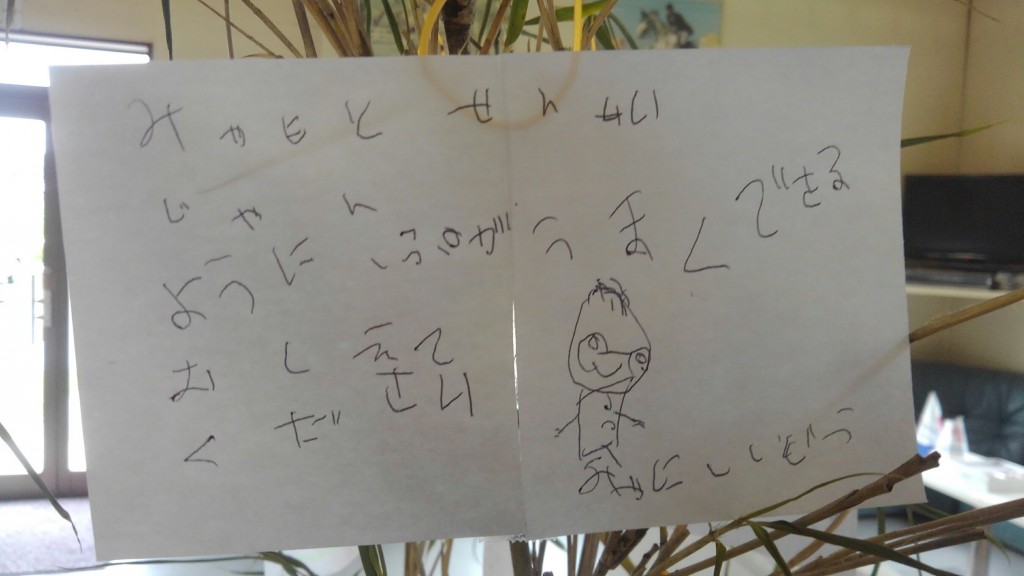 みやもと せんせい
じゃんぷがうまくできる
ように
おしえて
ください
みやにし